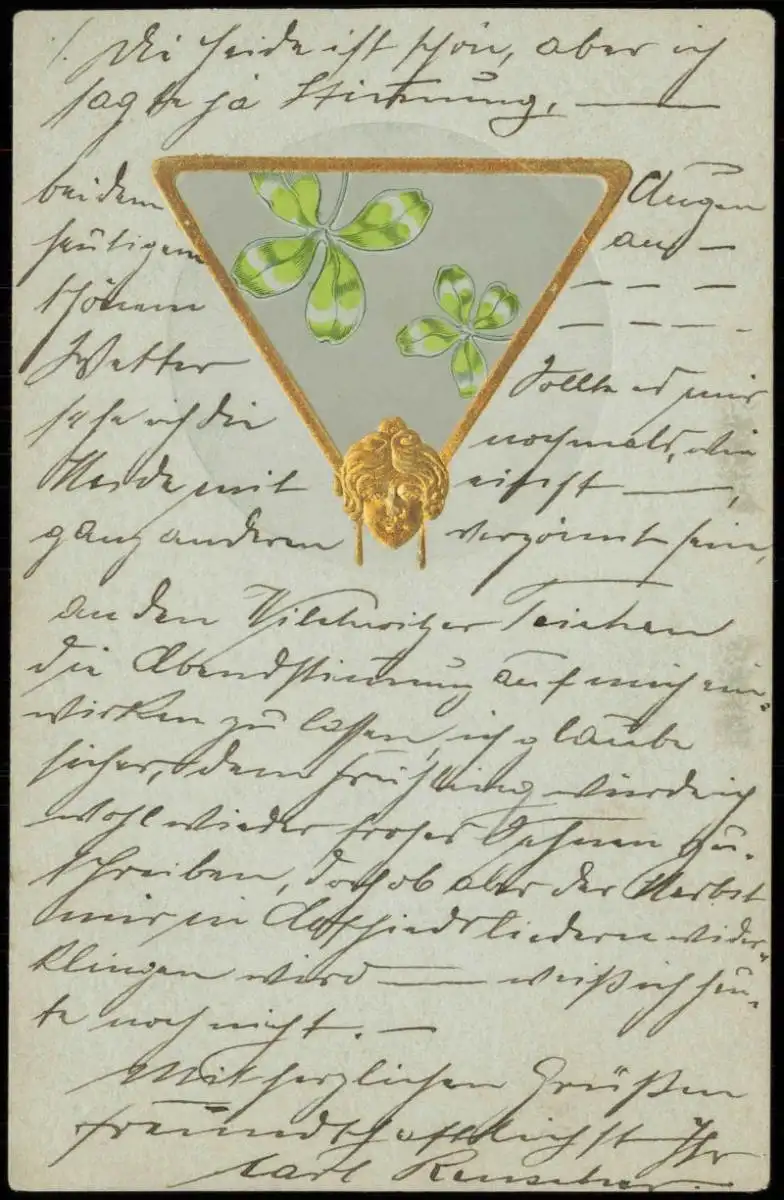 1. Die Heide ist schön, aber ich
sagte ja Stimmung, —
bei dem
heutigen
schönem
Wetter
sehe ich die
Heide mit
ganz anderen
Augen
an —
— — —
— — — -
Sollte es mir
nochmals, wie
einst —,
vergönnt sein,
an den Teichen
die Abendstimmung auf mich ein-
wirken zu lassen, ich glaube
sicher, dem Frühling würde ich
wohl wieder frohes Sehnen zu-
schreiben, doch ob aber der Herbst
mir in Abschiedsliedern wider-
klingen wird — weiß ich heu-
te noch nicht. —
Mit herzlichen Grüßen
freundschaftlichst Ihr
Karl